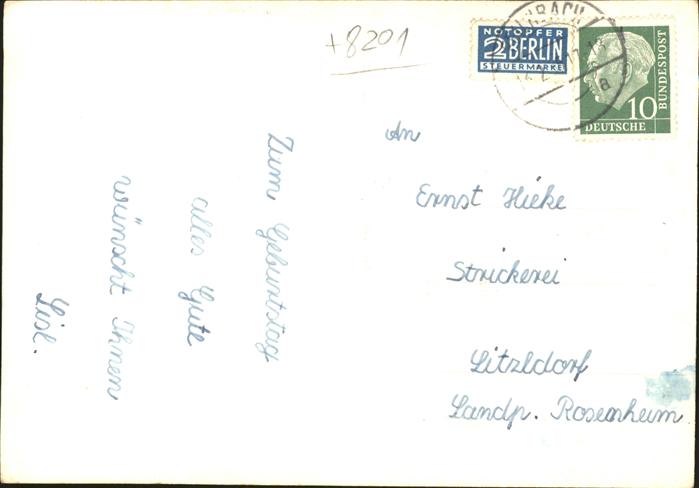 +8201
NOTOPFER
2 BERLIN
STEUERMARKE
10
DEUTSCHE
BUNDESPOST
a
An
Ernst Hieke
Strickerei
Litzldorf
Landp. Rosenheim
Zum Geburtstag
alles Gute
wünscht Ihnen
Lisl.